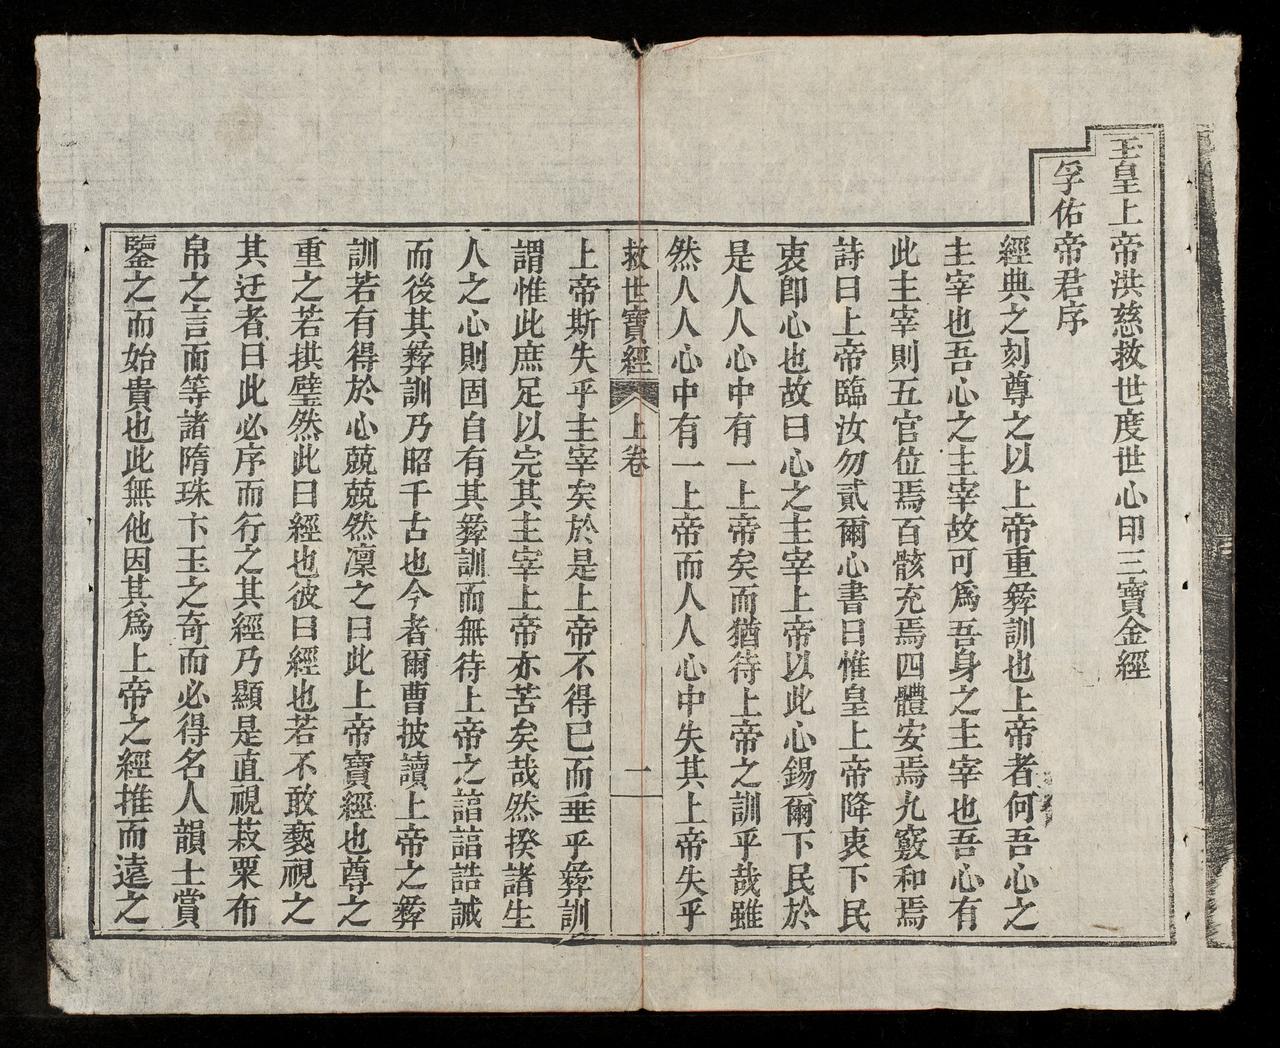 玉皇上帝洪慈救世度世心印三寶金經
孚佑帝君序
經典之刻尊之以上帝重彜訓也上帝者何吾心之
主宰也吾心之主宰故可爲吾身之主宰也吾心有
此主宰則五官位焉百骸充焉四體安焉九竅和焉
詩曰上帝臨汝勿貳爾心書曰惟皇上帝降衷下民
衷卽心也故曰心之主宰上帝以此心錫爾下民於
是人人心中有一上帝矣而猶待上帝之訓乎哉雖
然人人心中有一上帝而人人心中失其上帝失乎
救世寶經 上卷 一
上帝斯失乎主宰矣於是上帝不得已而垂乎彜訓
謂惟此庶足以完其主宰上帝亦苦矣哉然揆諸生
人之心則固自有其彜訓而無待上帝之諳諳誥誡
而後其彜訓乃昭千古也今者爾曹披讀上帝之彜
訓若有得於心兢兢然凜之曰此上帝寶經也尊之
重之若拱璧然此曰經也彼曰經也若不敢褻視之
其迂者曰此必序而行之其經乃顯是直視菽粟布
帛之言而等諸隋珠卞玉之奇而必得名人韻士賞
鑒之而始貴也此無他因其爲上帝之經推而遠之